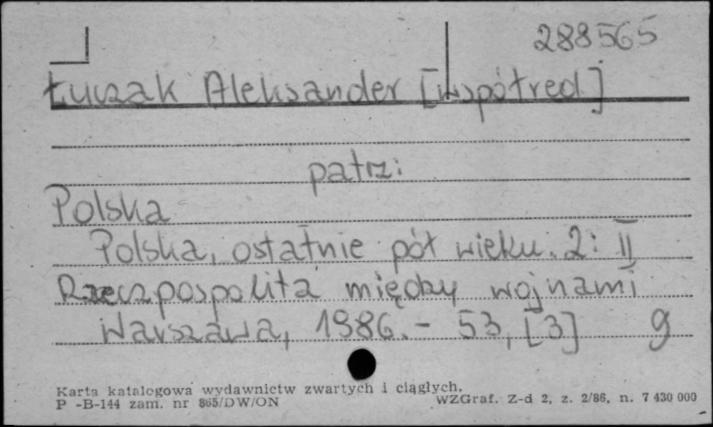 288565
Łuczak Aleksander [współred]
patrz:
Polska
Polska, ostatnie pół wieku. 2: II
Rzeczpospolita między wojnami
Warszawa, 1986. - 53, [3] g
Karta katalogowa wydawnictw zwartych i ciągłych.
P -B-144 zam. nr 865/DW/ON WZGraf. Z-d 2, z. 2/86, n. 7 430 000